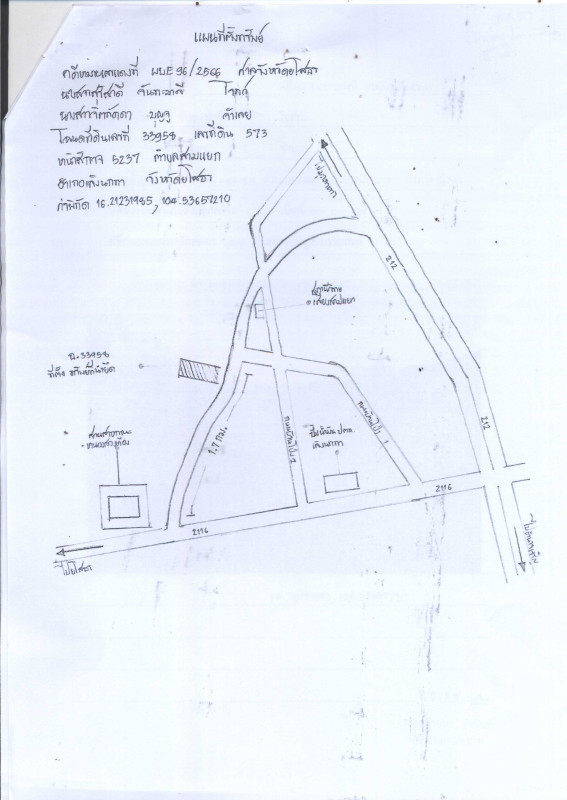 แผนที่ตั้งทรัพย์
คดีหมายเลขแดงที่ ผบE 96/2566 ศาลจังหวัดยโสธร
นางสาวสุชาดี จันทะมาลี โจทก์
นางสาวจิตลัดดา บุญ จำเลย
โฉนดที่ดินเลขที่ 33958 เลขที่ดิน 573
หน้าสำรวจ 5237 ตำบลสามแยก
อำเภอเลิงนกทา จังหวัดยโสธร
ค่าพิกัด 16.21231985, 104.53657210
ไปมุกดาหาร
212
น.33958
ที่ตั้ง ทรัพย์ที่นำยึด
1.7 กม.
ถนนบ้านโป่ง 2
ปั๊มน้ำมัน ปตท.
เลิงนกทา
ถนนบ้านโป่ง 1
212
2116
2116
ไปยโสธร
ไปอำนาจเจริญ